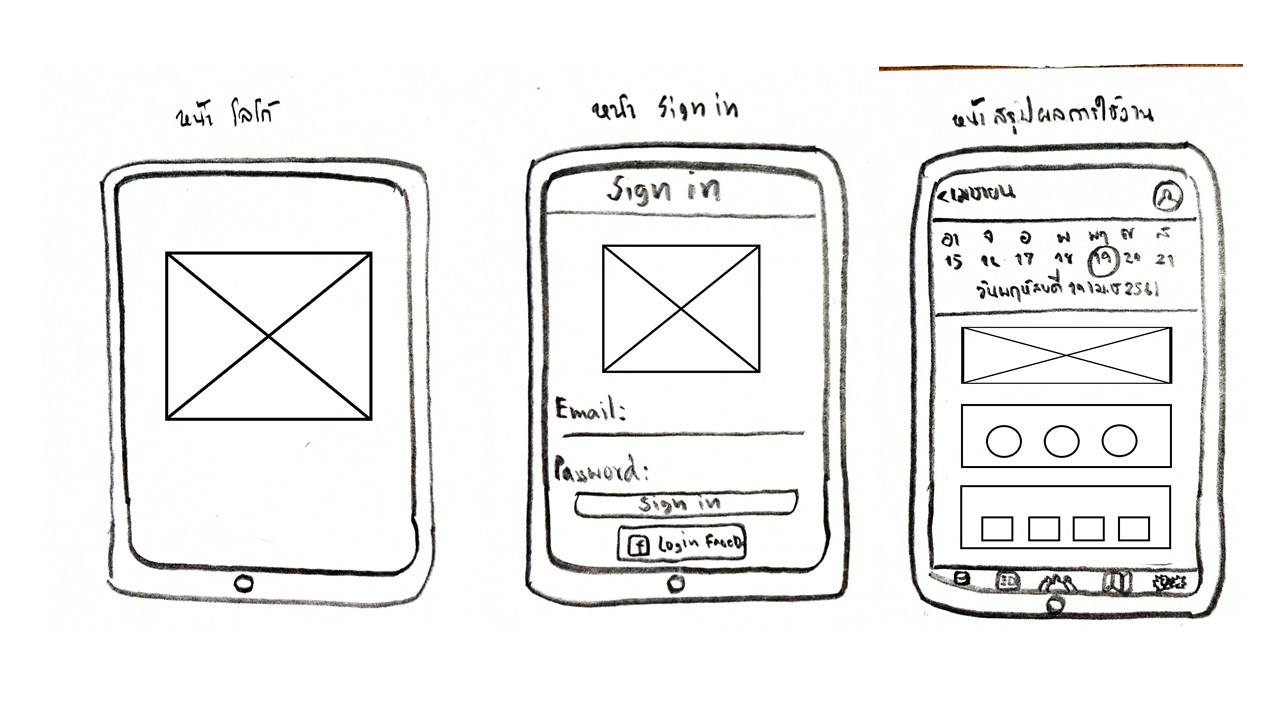 หน้า โลโก้
หน้า Sign in
Sign in
Email:
Password:
Sign in
f Login
หน้า สรุปผลการใช้งาน
<เมษายน
อา จ อ พ พฤ ศ ส
15 16 17 18 19 20 21
วันพฤหัสบดี 19 เมษ 2561